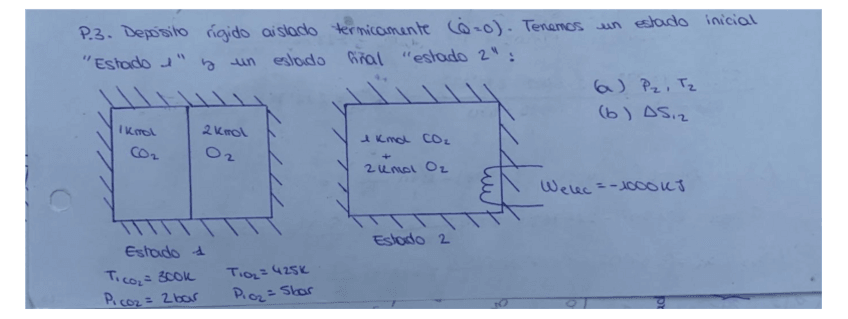 P.3. Depósito rígido aislado térmicamente (Q̇=0). Tenemos un estado inicial
"Estado 1" y un estado final "estado 2":
(a) P₂, T₂
(b) ΔS₁₂
1 Kmol
CO₂
2 Kmol
O₂
1 Kmol CO₂
+
2 Kmol O₂
Welec = -1000 KJ
Estado 1
Estado 2
T₁CO₂ = 300K T₁O₂ = 425K
P₁CO₂ = 2bar P₁O₂ = 5bar